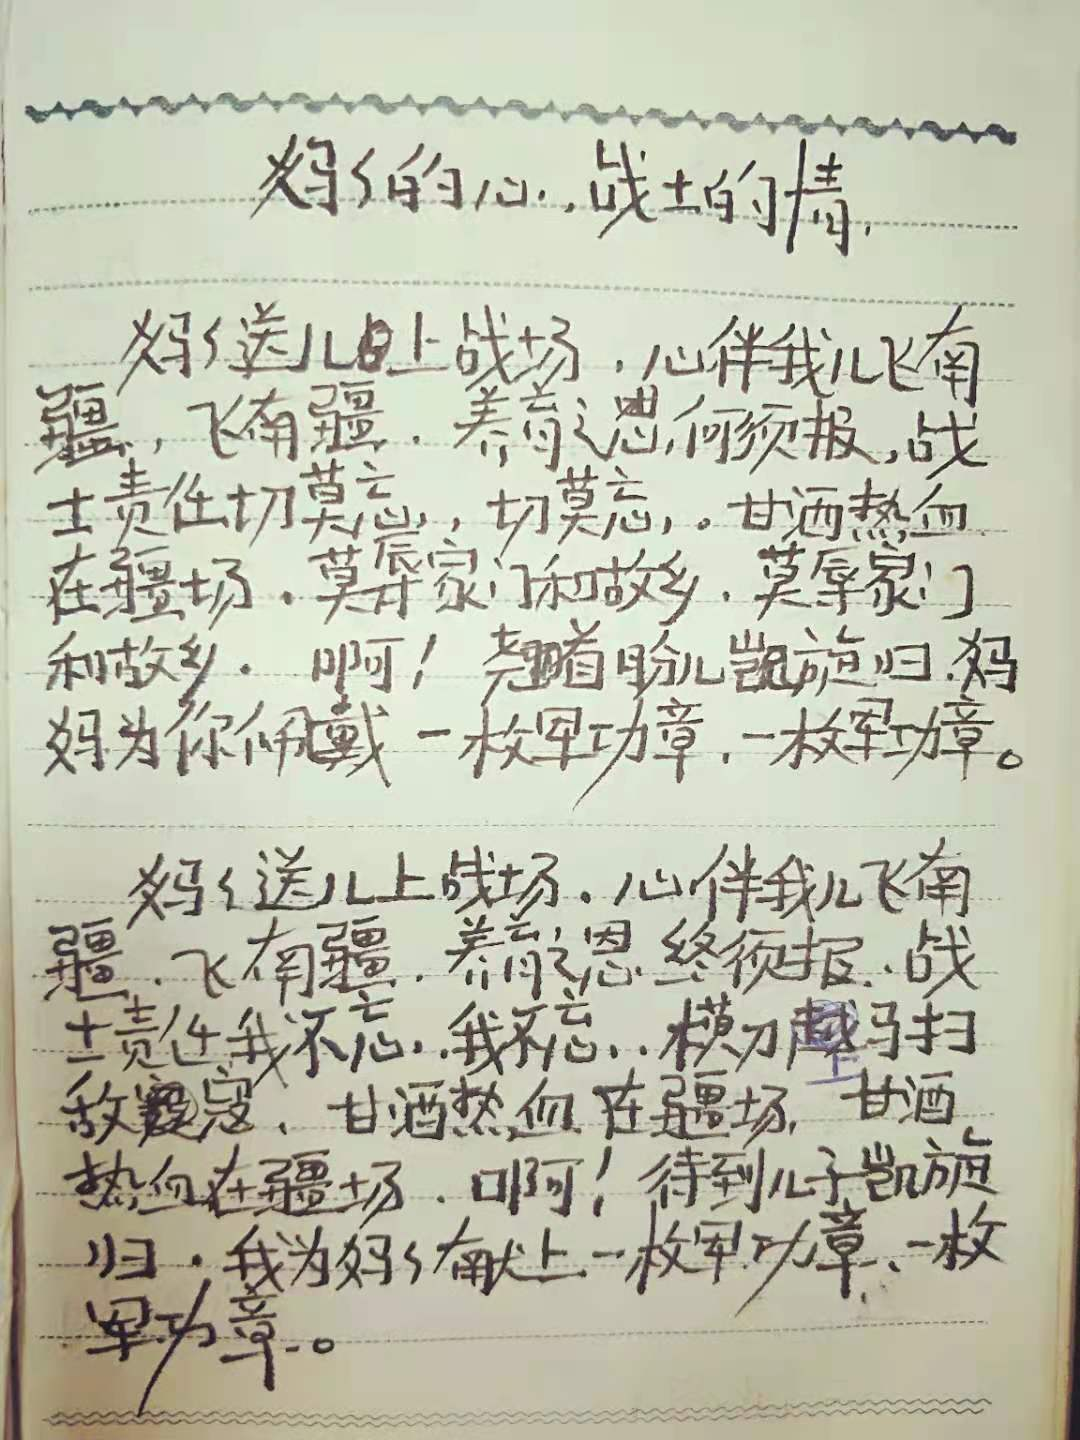 妈々的心，战士的情，
妈々送儿上战场，心伴我儿飞南
疆，飞南疆，养育之恩何须报，战
士责任切莫忘，切莫忘，。甘洒热血
在疆场，莫辱家门和故乡，莫辱家门
和故乡。啊！翘首盼儿凯旋归，妈
妈为你佩戴一枚军功章，一枚军功章。
妈々送儿上战场，心伴我儿飞南
疆，飞南疆，养育之恩终须报，战
士责任我不忘，我不忘，横刀马扫
敌寇，甘洒热血在疆场，甘洒
热血在疆场，啊！待到儿子凯旋
归，我为妈々献上一枚军功章、一枚
军功章。